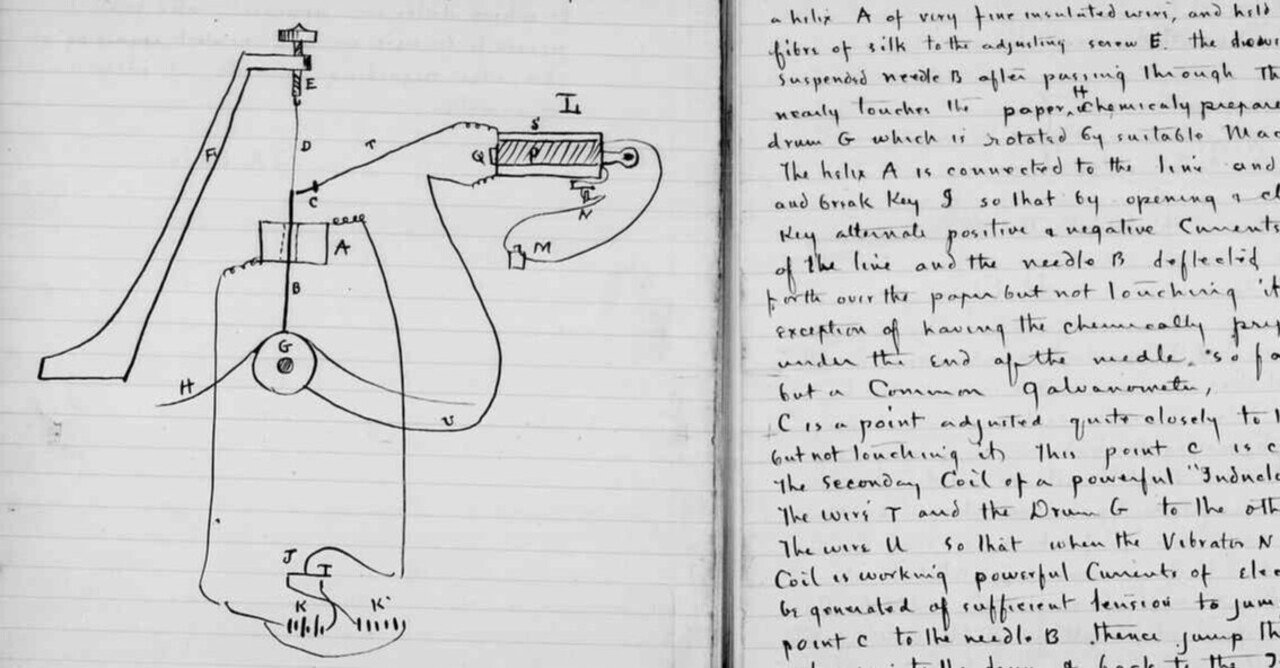 E
F
D
T
L
S
Q
P
C
N
M
A
B
G
H
U
J
I
K K'
a helix A of very fine insulated wire, and held
fibre of silk to the adjusting screw E. the
suspended needle B after passing through Th
nearly touches the paper, H chemicaly prepare
drum G which is rotated by suitable Mac
The helix A is connected to the line and
and break Key I so that by opening & cl
Key alternate positive & negative Currents
of the line and the needle B deflected
forth over the paper but not touching it
exception of having the chemecally prep
under the end of the needle. so fa
but a Common galvanometer,
C is a point adjusted quite closely to
but not touching it, This point C is c
The Secondary Coil of a powerful "Inducto
The wire T and the Drum G to the oth
The wire U so that when the Vibrator N
Coil is working powerful Currents of elec
be generated of sufficient tension to jum
point C to the needle B thence jump th